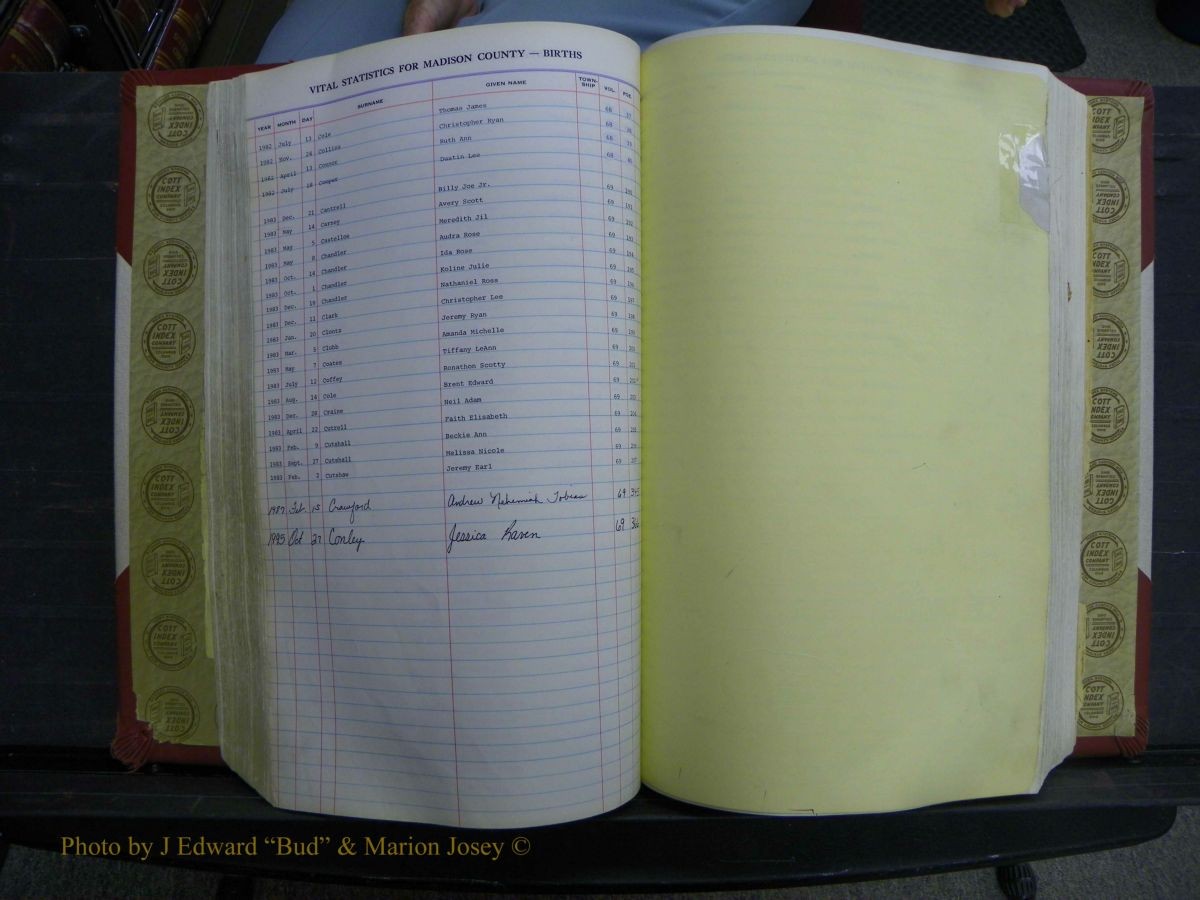 VITAL STATISTICS FOR MADISON COUNTY — BIRTHS
YEAR MONTH DAY SURNAME GIVEN NAME TOWN-SHIP VOL. PGE
1982 July 13 Cole Thomas James 68
1982 Nov. 24 Collins Christopher Ryan 68
1982 April 13 Connor Ruth Ann 68
1982 July 18 Cooper Dustin Lee 68
1983 Dec. 21 Cantrell Billy Joe Jr. 69 190
1983 May 14 Carney Avery Scott 69 191
1983 May 5 Castelloe Meredith Jil 69 192
1983 May 8 Chandler Audra Rose 69 193
1983 Oct. 14 Chandler Ida Rose 69 194
1983 Oct. 1 Chandler Koline Julie 69 195
1983 Dec. 19 Chandler Nathaniel Ross 69 196
1983 Dec. 11 Clark Christopher Lee 69 197
1983 Jan. 20 Clontz Jeremy Ryan 69 198
1983 Mar. 5 Clubb Amanda Michelle 69 199
1983 May 7 Coates Tiffany LeAnn 69 200
1983 July 12 Coffey Ronathon Scotty 69 201
1983 Aug. 14 Cole Brent Edward 69 202
1983 Dec. 28 Craine Neil Adam 69 203
1983 April 22 Cutrell Faith Elisabeth 69 204
1983 Feb. 9 Cutshall Beckie Ann 69 205
1983 Sept. 27 Cutshall Melissa Nicole 69 206
1983 Feb. 2 Cutshaw Jeremy Earl 69 207
1987 Feb. 15 Crawford Andrew Nehemiah Tobias 69
1995 Oct 27 Conley Jessica Raven 69
COTT INDEX COMPANY COLUMBUS OHIO
Photo by J Edward “Bud” & Marion Josey ©